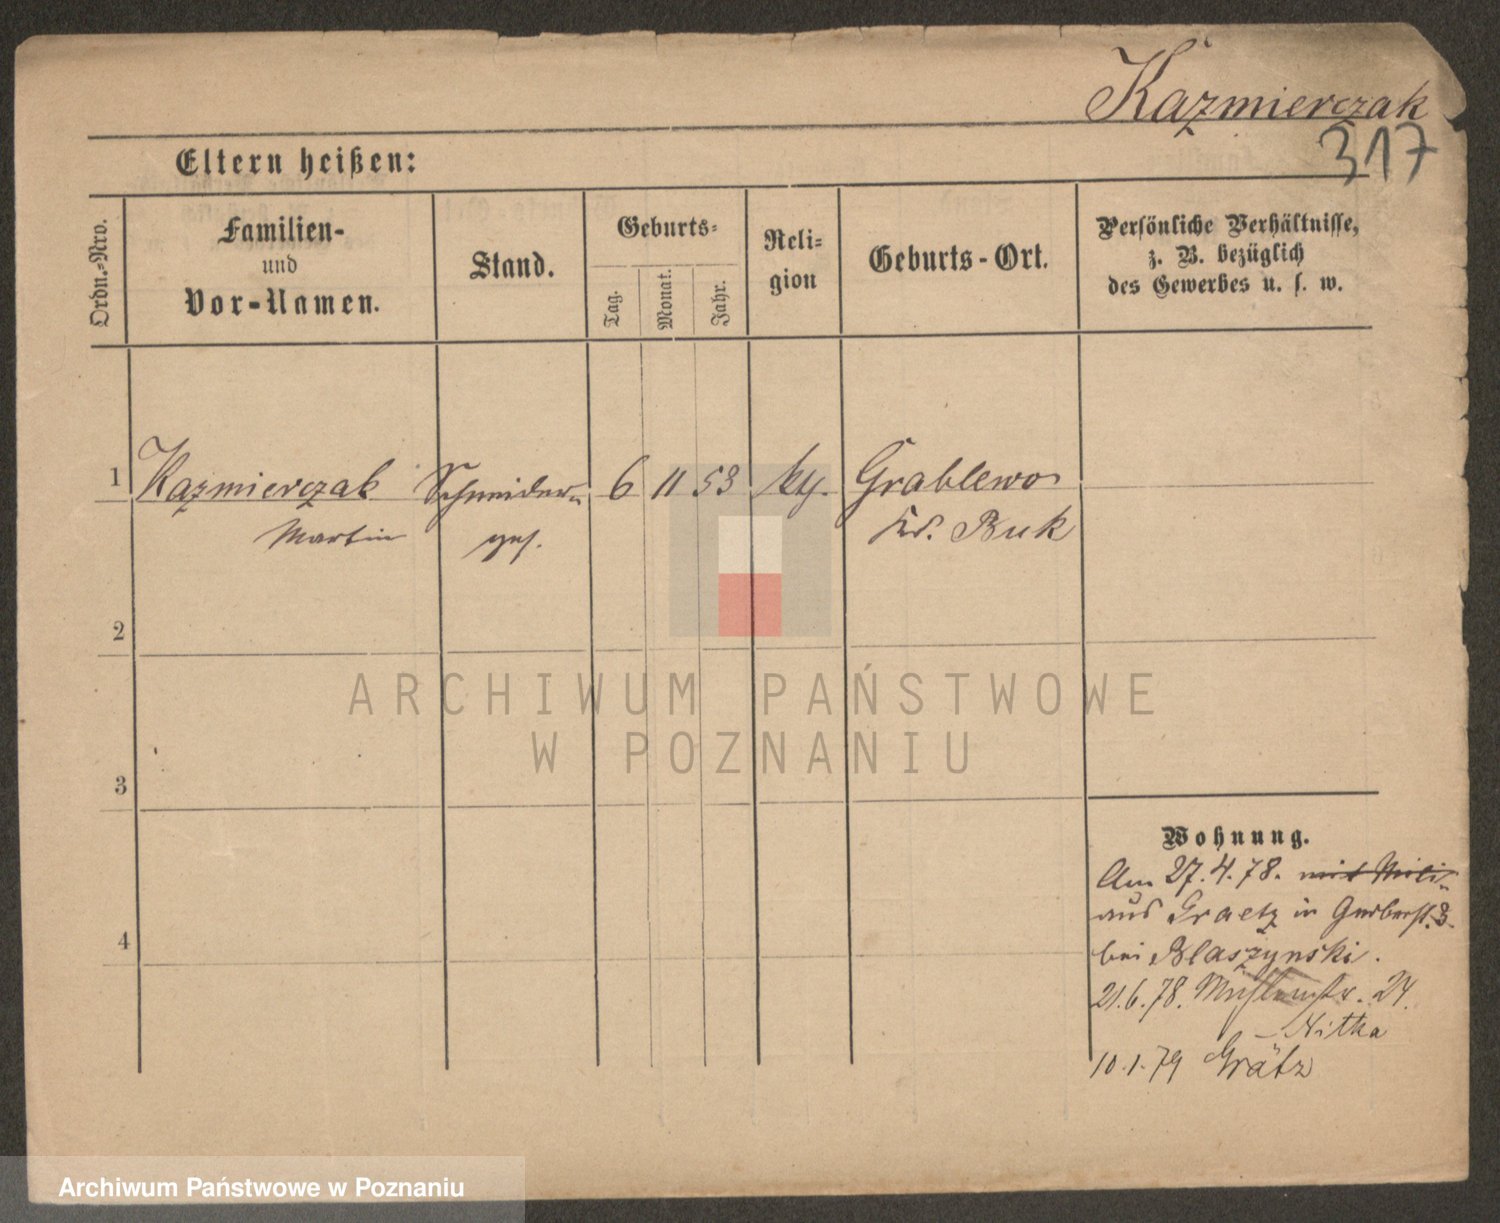 Kazmierczak
317
Eltern heißen:
Ordn.-Nro.
Familien-
und
Vor-Namen.
Stand.
Geburts-
Tag.
Monat.
Jahr.
Reli-
gion
Geburts-Ort.
Persönliche Verhältnisse,
z. B. bezüglich
des Gewerbes u. s. w.
1 Kazmierczak Schneider- 6 11 53 kth. Grablewo
Martin ges. Kr. Buk
2
3
4
Wohnung.
Am 27.4.78. mit
aus Graetz in Gerberst. 3.
bei Blaszynski.
21.6.78. Mühlenstr. 24.
Nitka
10.1.79 Grätz
ARCHIWUM PAŃSTWOWE
W POZNANIU
Archiwum Państwowe w Poznaniu